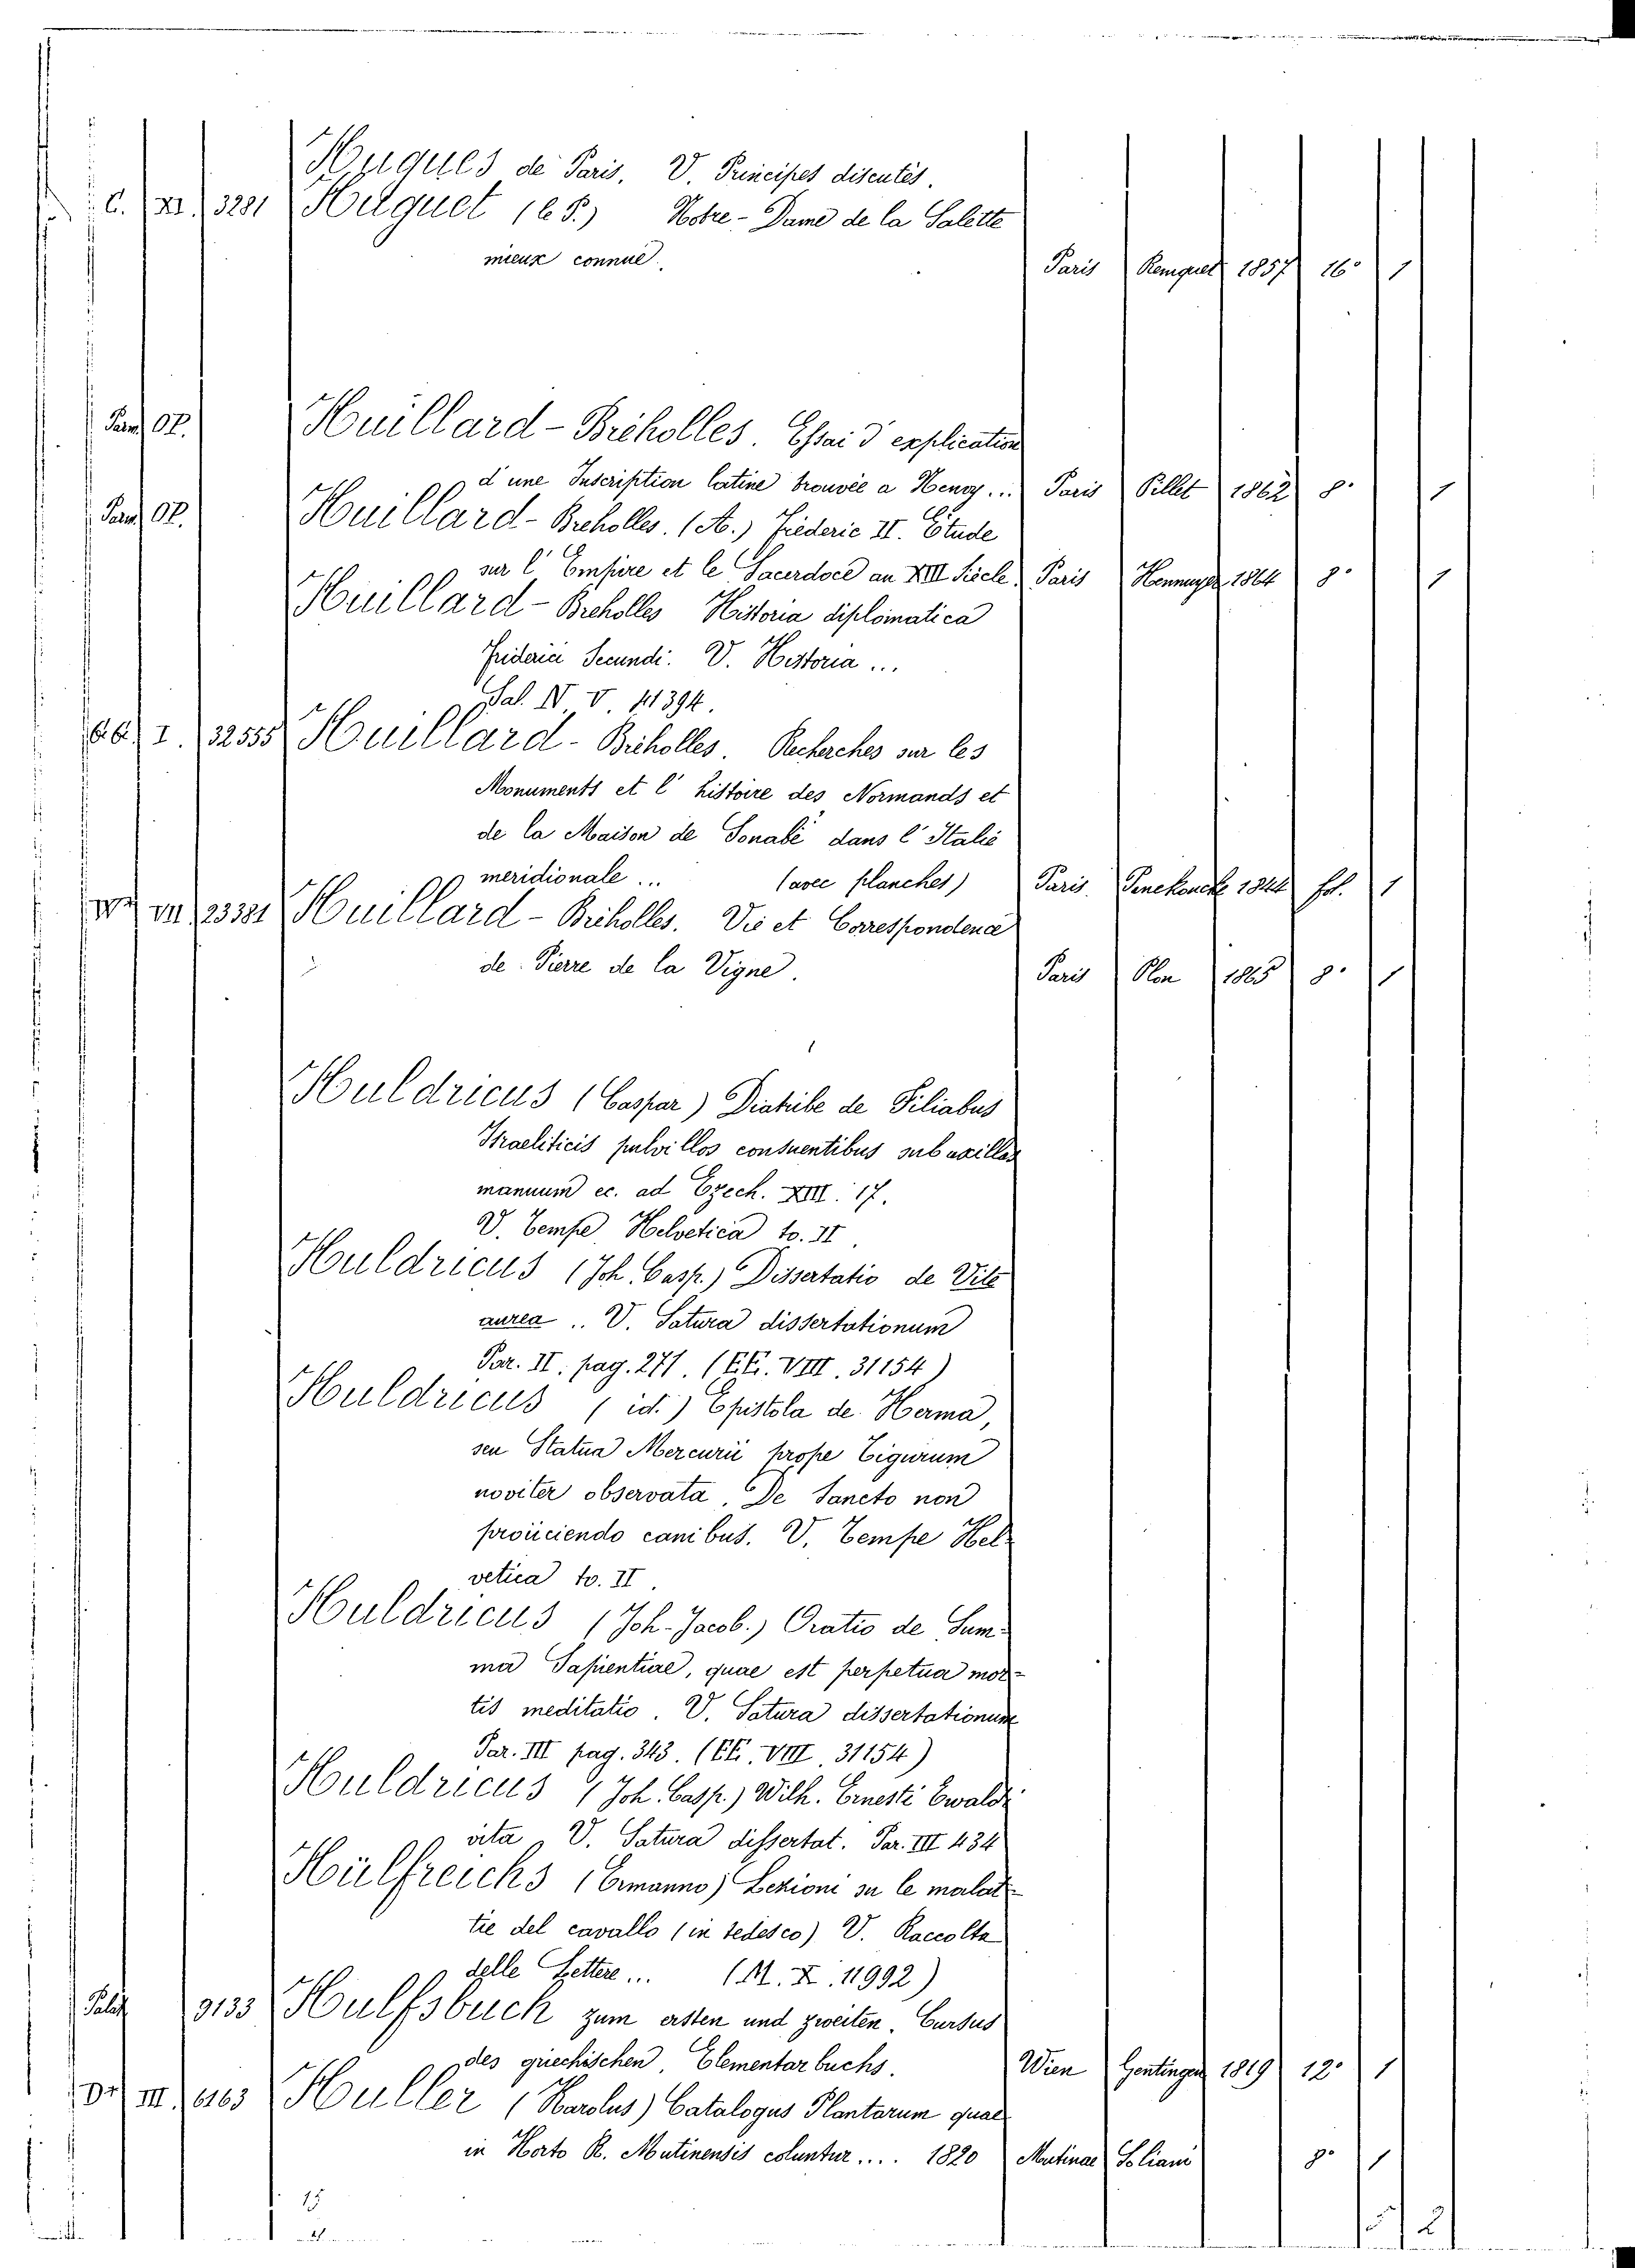 Hugues de Paris. V. Principes discutés.
C. XI. 3281 Huguet (l. P.) Notre-Dame de la Salette
mieux connue. Paris Remquet 1857 16° 1
Huillard-Bréholles. Essai d'explication
d'une Inscription latine trouvée a Henoy... Paris Pillet 1862 8° 1
Huillard-Breholles. (A.) Fréderic II. Étude
sur l'Empire et le Sacerdoce an XIII Siècle. Paris Hennuyer 1864 8° 1
Huillard-Breholles Historia diplomatica
Friderici Secundi. V. Historia ...
Sal. IV V. 41394.
I. 32555 Huillard-Bréholles. Recherches sur les
Monuments et l'histoire des Normands et
de la Maison de Sonabé dans l'Italie
meridionale ... (avec planches) Paris. Penckoncke 1844 fol. 1
VII 23381 Huillard-Bréholles. Vie et Correspondence
de Pierre de la Vigne. Paris Plon 1865 8° 1
Huldricus (Caspar) Diatribe de Filiabus
Israeliticis pulvillos consuentibus sub axillas
manuum ec. ad Ezech. XIII. 17.
V. Tempe Helvetica to. II.
Huldricus (Joh. Casp.) Dissertatio de Vite
aurea .. V. Satura dissertationum
Par. II. pag. 271. (EE. VIII. 31154)
Huldricus (id.) Epistola de Herma,
seu Statua Mercurii prope Tigurum
noviter observata. De Sancto non
proiiciendo canibus. V. Tempe Hel-
vetica to. II.
Huldricus (Joh. Jacob.) Oratio de Sum-
ma Sapientiae, quae est perpetua mor-
tis meditatio. V. Satura dissertationum
Par. III pag. 343. (EE. VIII. 31154)
Huldricus (Joh. Casp.) Wilh. Ernesti Ewaldi
vita. V. Satura dissertat. Par. III 434
Hülfreichs (Ermanno) Lezioni su le malat-
tie del cavallo (in tedesco) V. Raccolta
delle Lettere... (M. X. 11992)
Palat. 9133 Hulfsbuch zum ersten und zweiten Cursus
des griechischen Elementarbuchs. Wien 1819 12° 1
III. 6163 Huller (Karolus) Catalogus Plantarum quae
in Horto R. Mutinensis coluntur.... 1820 Mutinae Soliani 8° 1
15